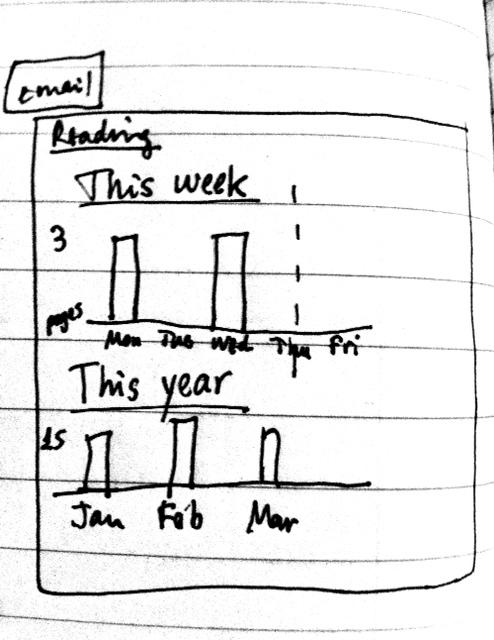 email
Reading
This week
3
pages
Mon Tue Wed Thu Fri
This year
15
Jan Feb Mar